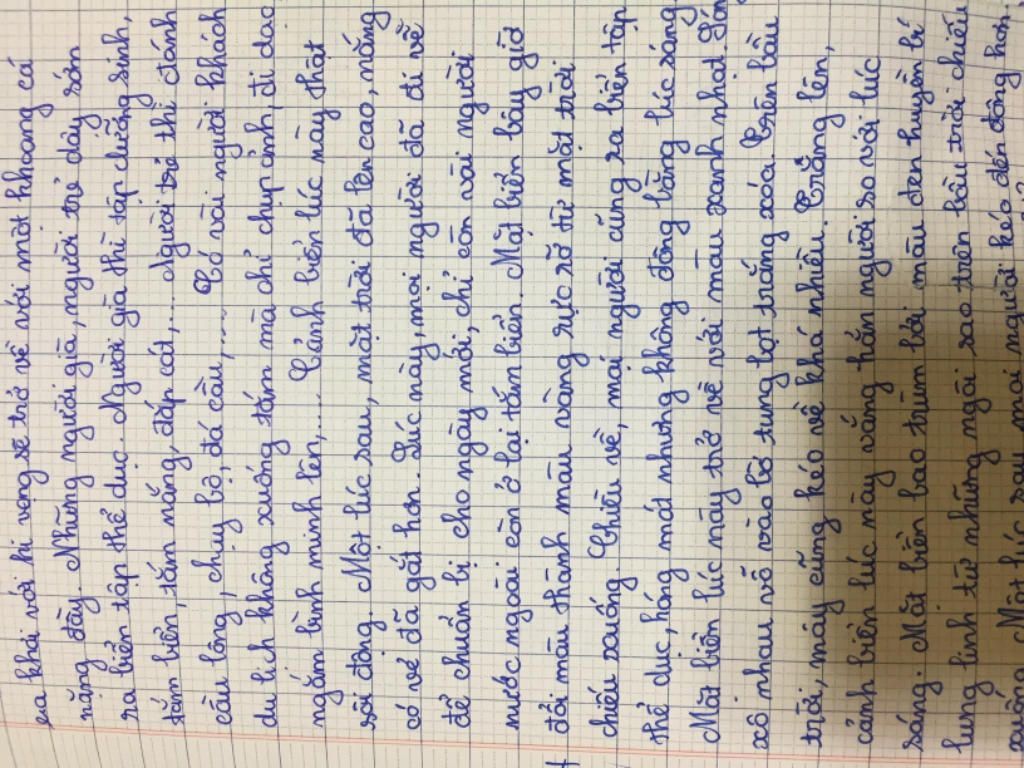 ra khơi với hi vọng sẽ trở về với một khoang cá
nặng đầy. Những người già, người trẻ dậy sớm
ra biển tập thể dục. Người già thì tập dưỡng sinh,
tắm biển, tắm nắng, đắp cát,... Người trẻ thì đánh
cầu lông, chạy bộ, đá cầu,.... Có vài người khách
du lịch không xuống tắm mà chỉ chụp ảnh, đi dạo,
ngắm bình minh lên,.... Cảnh biển lúc này thật
sôi động. Một lúc sau, mặt trời đã lên cao, nắng
có vẻ đã gắt hơn. Lúc này, mọi người đã đi về
để chuẩn bị cho ngày mới, chỉ còn vài người
nước ngoài còn ở lại tắm biển. Mặt biển bây giờ
đổi màu thành màu vàng rực rỡ từ mặt trời
chiếu xuống. Chiều về, mọi người cũng ra biển tập
thể dục, hóng mát nhưng không đông bằng lúc sáng.
Mặt biển lúc này trở về với màu xanh nhạt. Sóng
xô nhau vỗ vào bờ tung bọt trắng xóa. Trên bầu
trời, mây cũng kéo về khá nhiều. Trăng lên,
cảnh biển lúc này vắng hẳn người so với lúc
sáng. Mặt biển bao trùm bởi màu đen huyền bí
lung linh từ những ngôi sao trên bầu trời chiếu
xuống. Một lúc sau, mọi người kéo đến đông hơn.